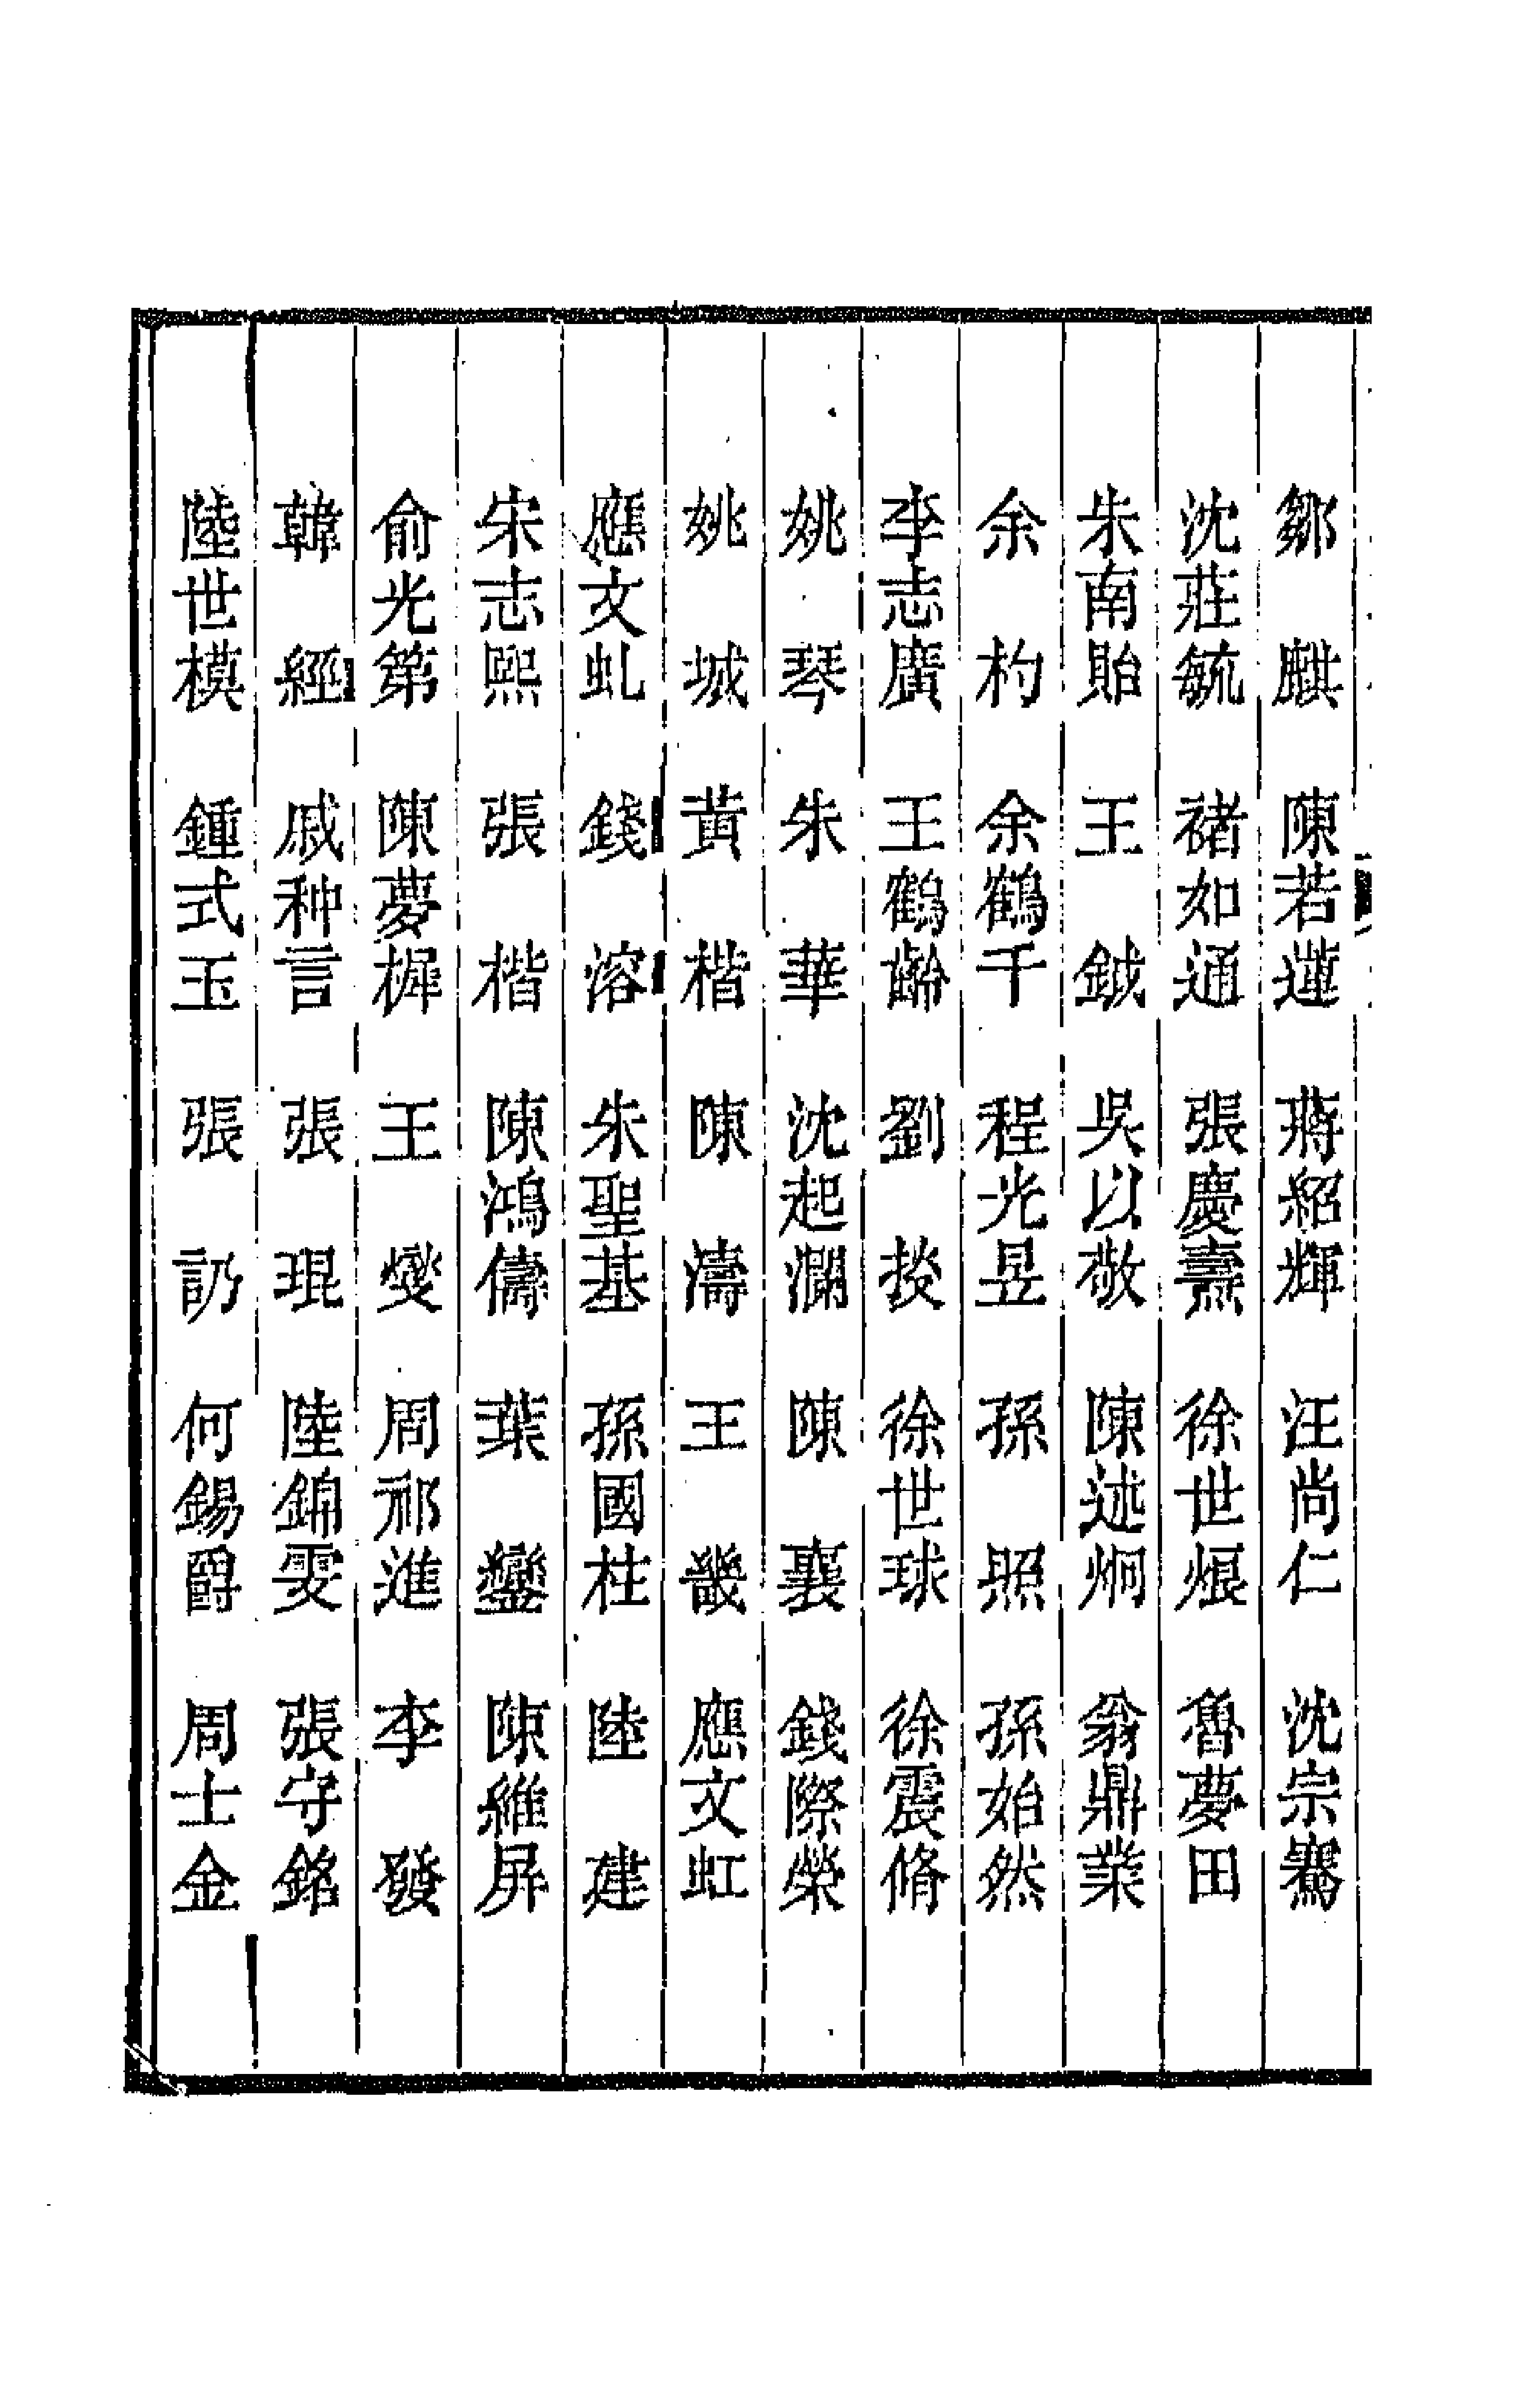 鄒　麒　陳若蓮　蔣紹輝　汪尚仁　沈宗騫
沈莊毓　褚如通　張慶燾　徐世烺　魯夢田
朱南貽　王　鉞　吳以敬　陳述炯　翁鼎業
余　杓　余鶴千　程光昱　孫　照　孫始然
李志廣　王鶴齡　劉　掞　徐世球　徐震脩
姚　琴　朱　華　沈起瀾　陳　襄　錢際榮
姚　城　黃　楷　陳　濤　王　畿　應文虹
應文虬　錢　溶　朱聖基　孫國柱　陸　建
宋志熙　張　楷　陳鴻儔　葉　鑾　陳維屏
俞光第　陳夢樨　王　燮　周祁進　李　發
韓　經　戚种言　張　琨　陸錦雯　張守銘
陸世模　鍾式玉　張　訒　何錫爵　周士金